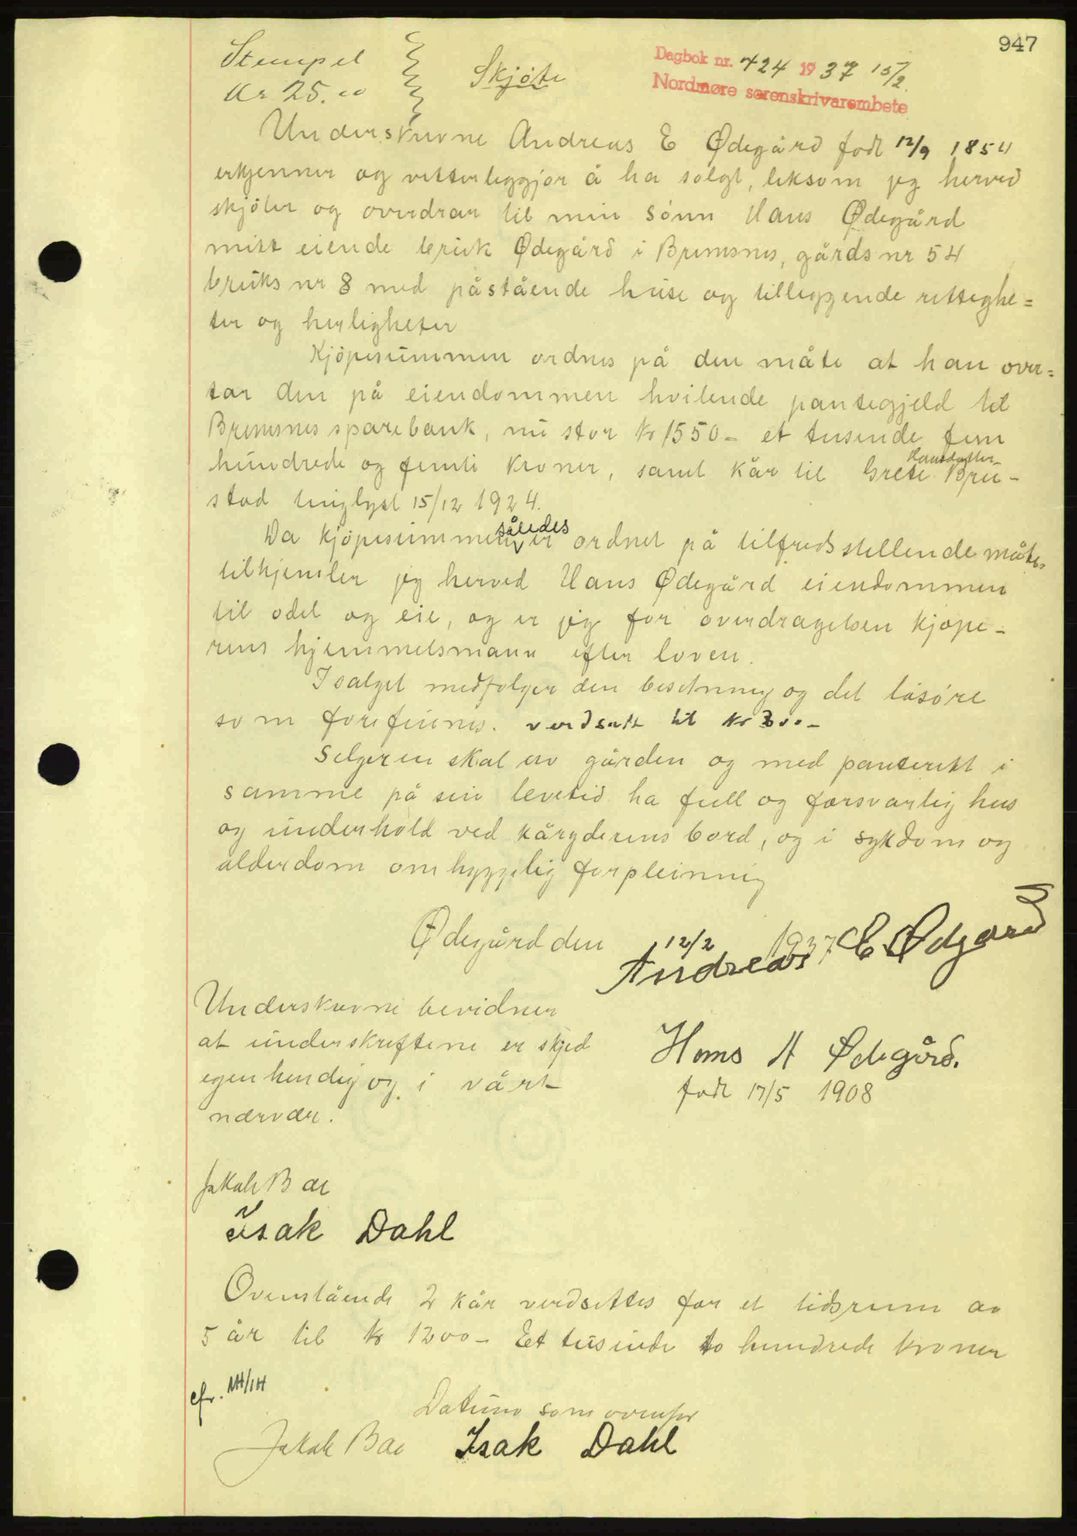 947
Stempel
Kr 25.00
Skjöte
Dagbok nr. 424 1937 15/2.
Nordmøre sorenskrivarembete
Underskrevne Andreas E Ødegård født 12/9 1854
erkjenner og vitterleggjør å ha solgt, liksom jeg herved
skjöter og overdrar til min sönn Hans Ødegård
mitt eiende bruk Ødegård i Bremsnes, gårds nr 54
bruks nr 8 med påstående huse og tilleggende rettighe=
ter og herligheter
Kjöpesummen ordnes på den måte at han over=
tar den på eiendommen hvilende pantegjeld til
Bremsnes sparebank, nu stor Kr 1550- et tusende fem
hundrede og femti kroner, samt kår til Grete Hansdatter Bru-
stad tinglyst 15/12 1924.
Da kjöpesummen således er ordnet på tilfredsstellende måte,
tilhjemler jeg herved Hans Ødegård eiendommen
til odel og eie, og er jeg for overdragelsen kjøpe-
rens hjemmelsmann efter loven.
I salget medfølger den besetning og det løsöre
som forefinnes. verdsatt til Kr 300-
Selgeren skal av gården og med panterett i
samme på sin levetid ha full og forsvarlig hus
og underhold ved kåryderens bord, og i sykdom og
alderdom omhyggelig forpleining
Ødegård den 12/2 1937.
Andreas E Ødgard
Underskrevne bevidner
at underskriftene er skjed
egenhendig og i vårt
nærvær.
Hans A Ødegård.
født 17/5 1908
Jakob Bae
Isak Dahl
Ovenstående 2 kår verdsettes for et tidsrum av
5 år til Kr 1200- Et tusinde to hundrede kroner
cfr. NH/IH
Datum som ovenfor
Jakob Bae Isak Dahl